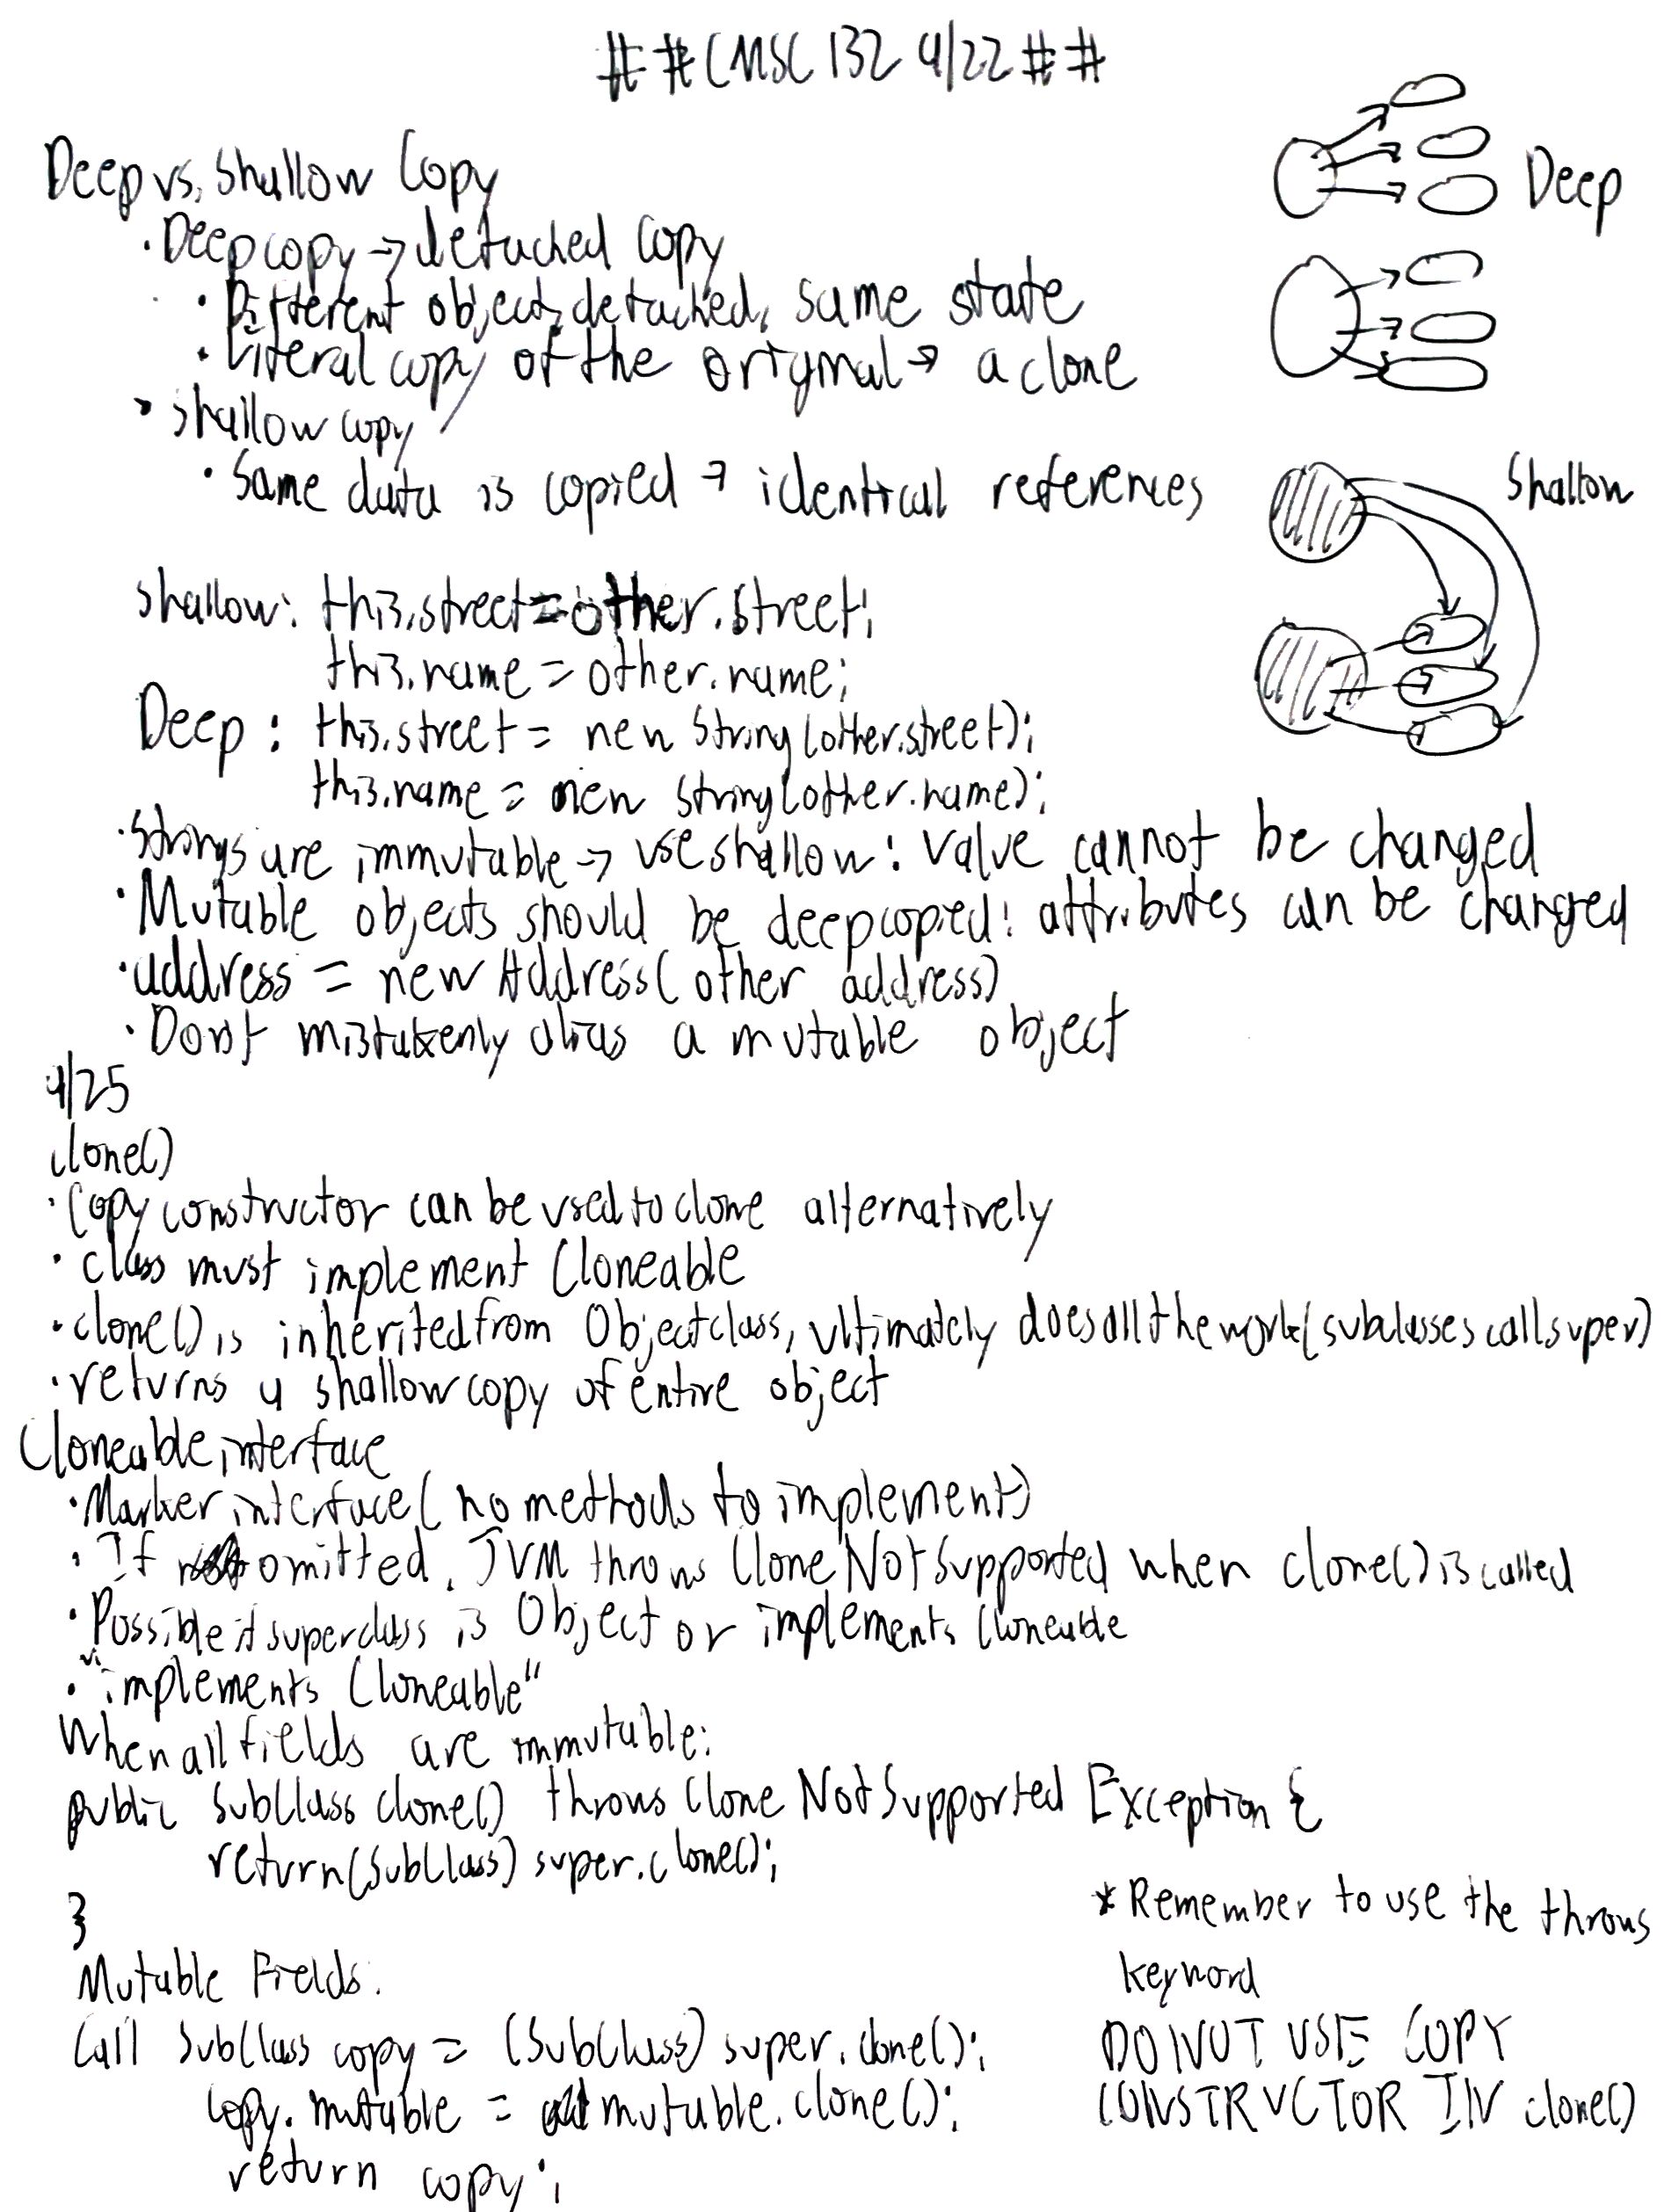 ##CMSC 132 4/22##
Deep vs. Shallow Copy
Deep
· Deep copy → detached copy
· Different object, detached, same state
· Literal copy of the original → a clone
· shallow copy
· Same data is copied → identical references
Shallow
shallow: this.street = other.street;
this.name = other.name;
Deep: this.street = new String(other.street);
this.name = new String(other.name);
· Strings are immutable → use shallow: value cannot be changed
· Mutable objects should be deep copied: attributes can be changed
· address = new Address(other address)
· Don't mistakenly alias a mutable object
4/25
clone()
· Copy constructor can be used to clone alternatively
· class must implement Cloneable
· clone() is inherited from Object class, ultimately does all the work (subclasses call super)
· returns a shallow copy of entire object
Cloneable interface
· Marker interface (no methods to implement)
· If omitted, JVM throws CloneNotSupported when clone() is called
· Possible if superclass is Object or implements Cloneable
· "implements Cloneable"
When all fields are immutable:
public SubClass clone() throws CloneNotSupportedException {
return (SubClass) super.clone();
}
* Remember to use the throws
keyword
Mutable Fields:
Call SubClass copy = (SubClass) super.clone();
copy.mutable = mutable.clone();
return copy;
DO NOT USE COPY
CONSTRUCTOR IN clone()